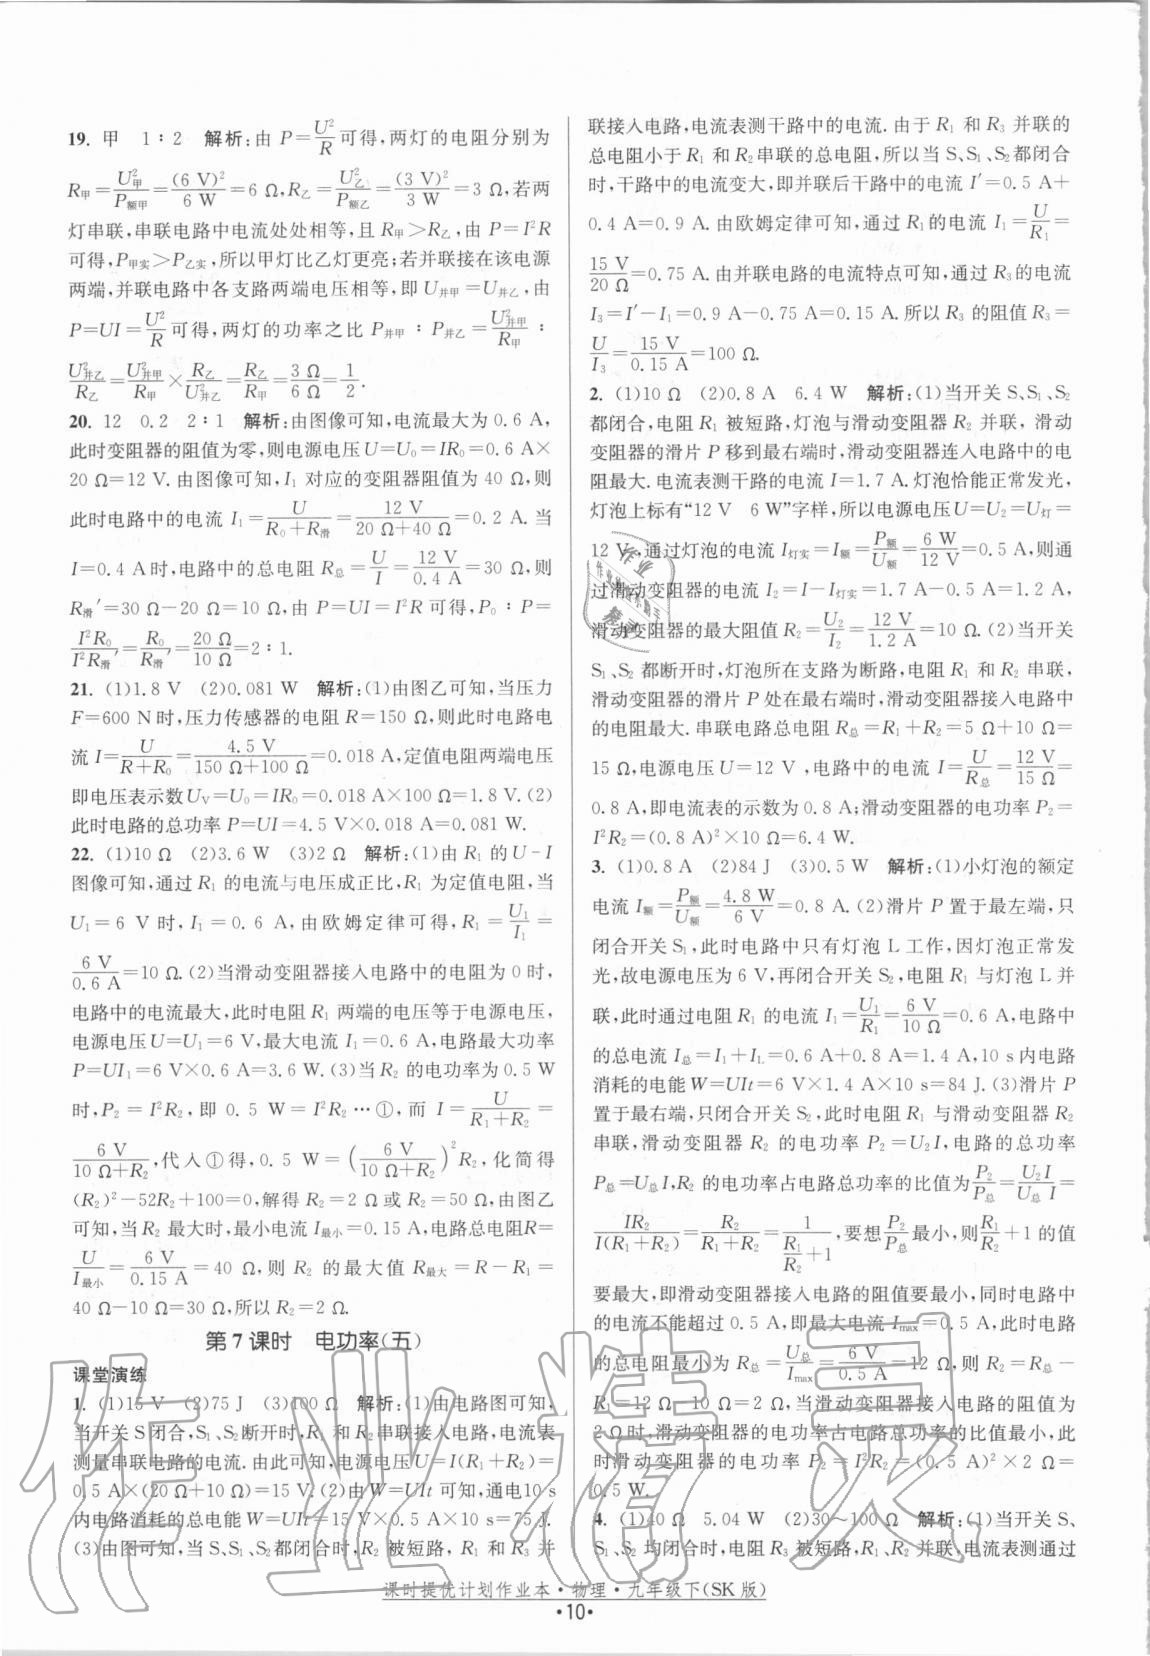 19. 甲　1∶2　解析:由 P=U²/R可得,两灯的电阻分别为
R甲=U²甲/P额甲=(6 V)²/6 W=6 Ω,R乙=U²乙/P额乙=(3 V)²/3 W=3 Ω,若两
灯串联,串联电路中电流处处相等,且 R甲>R乙,由 P=I²R
可得,P甲实>P乙实,所以甲灯比乙灯更亮;若并联接在该电源
两端,并联电路中各支路两端电压相等,即 U并甲=U并乙,由
P=UI=U²/R可得,两灯的功率之比 P并甲∶P并乙=U²并甲/R甲∶
U²并乙/R乙=U²并甲/R甲×R乙/U²并乙=R乙/R甲=3 Ω/6 Ω=1/2.
20. 12　0.2　2∶1　解析:由图像可知,电流最大为 0.6 A,
此时变阻器的阻值为零,则电源电压 U=U₀=IR₀=0.6 A×
20 Ω=12 V.由图像可知,I₁ 对应的变阻器阻值为 40 Ω,则
此时电路中的电流 I₁=U/(R₀+R滑)=12 V/(20 Ω+40 Ω)=0.2 A.当
I=0.4 A时,电路中的总电阻 R总=U/I=12 V/0.4 A=30 Ω,则
R滑′=30 Ω-20 Ω=10 Ω,由 P=UI=I²R 可得,P₀∶P=
I²R₀/I²R滑′=R₀/R滑′=20 Ω/10 Ω=2∶1.
21. (1)1.8 V　(2)0.081 W　解析:(1)由图乙可知,当压力
F=600 N时,压力传感器的电阻 R=150 Ω,则此时电路电
流 I=U/(R+R₀)=4.5 V/(150 Ω+100 Ω)=0.018 A,定值电阻两端电压
即电压表示数UV=U₀=IR₀=0.018 A×100 Ω=1.8 V.(2)
此时电路的总功率 P=UI=4.5 V×0.018 A=0.081 W.
22. (1)10 Ω　(2)3.6 W　(3)2 Ω　解析:(1)由 R₁ 的 U-I
图像可知,通过 R₁ 的电流与电压成正比,R₁ 为定值电阻,当
U₁=6 V 时,I₁=0.6 A,由欧姆定律可得,R₁=U₁/I₁=
6 V/0.6 A=10 Ω.(2)当滑动变阻器接入电路中的电阻为 0 时,
电路中的电流最大,此时电阻 R₁ 两端的电压等于电源电压,
电源电压U=U₁=6 V,最大电流 I₁=0.6 A,电路最大功率
P=UI₁=6 V×0.6 A=3.6 W.(3)当 R₂ 的电功率为 0.5 W
时,P₂=I²R₂,即 0.5 W=I²R₂…①,而 I=U/(R₁+R₂)=
6 V/(10 Ω+R₂),代入①得,0.5 W=(6 V/(10 Ω+R₂))²R₂,化简得
(R₂)²-52R₂+100=0,解得 R₂=2 Ω 或 R₂=50 Ω,由图乙
可知,当 R₂ 最大时,最小电流 I最小=0.15 A,电路总电阻R=
U/I最小=6 V/0.15 A=40 Ω,则 R₂ 的最大值 R最大=R-R₁=
40 Ω-10 Ω=30 Ω,所以 R₂=2 Ω.
第 7 课时　电功率(五)
课堂演练
1. (1)15 V　(2)75 J　(3)100 Ω　解析:(1)由电路图可知,
当开关 S闭合,S₁、S₂断开时,R₁ 和 R₂串联接入电路,电流表
测量串联电路的电流.由此可知,电源电压U=I(R₁+R₂)=
0.5 A×(20 Ω+10 Ω)=15 V.(2)由W=UIt 可知,通电10 s
内电路消耗的总电能 W=UIt=15 V×0.5 A×10 s=75 J.
(3)由图可知,当 S、S₁、S₂都闭合时,R₂ 被短路,R₁ 和 R₃ 并
联接入电路,电流表测干路中的电流.由于 R₁ 和 R₃ 并联的
总电阻小于 R₁ 和 R₂串联的总电阻,所以当 S、S₁、S₂都闭合
时,干路中的电流变大,即并联后干路中的电流 I′=0.5 A+
0.4 A=0.9 A.由欧姆定律可知,通过 R₁的电流 I₁=U/R₁=
15 V/20 Ω=0.75 A.由并联电路的电流特点可知,通过 R₃的电流
I₃=I′-I₁=0.9 A-0.75 A=0.15 A.所以 R₃ 的阻值 R₃=
U/I₃=15 V/0.15 A=100 Ω.
2. (1)10 Ω　(2)0.8 A　6.4 W　解析:(1)当开关 S、S₁、S₂
都闭合,电阻 R₁ 被短路,灯泡与滑动变阻器 R₂ 并联,滑动
变阻器的滑片 P 移到最右端时,滑动变阻器连入电路中的电
阻最大.电流表测干路的电流 I=1.7 A.灯泡恰能正常发光,
灯泡上标有“12 V　6 W”字样,所以电源电压U=U₂=U灯=
12 V,通过灯泡的电流 I灯实=I额=P额/U额=6 W/12 V=0.5 A,则通
过滑动变阻器的电流 I₂=I-I灯实=1.7 A-0.5 A=1.2 A,
滑动变阻器的最大阻值 R₂=U₂/I₂=12 V/1.2 A=10 Ω.(2)当开关
S₁、S₂ 都断开时,灯泡所在支路为断路,电阻 R₁ 和 R₂ 串联,
滑动变阻器的滑片 P 处在最右端时,滑动变阻器接入电路中
的电阻最大.串联电路总电阻 R总=R₁+R₂=5 Ω+10 Ω=
15 Ω,电源电压 U=12 V,电路中的电流 I=U/R总=12 V/15 Ω=
0.8 A,即电流表的示数为 0.8 A;滑动变阻器的电功率 P₂=
I²R₂=(0.8 A)²×10 Ω=6.4 W.
3. (1)0.8 A　(2)84 J　(3)0.5 W　解析:(1)小灯泡的额定
电流 I额=P额/U额=4.8 W/6 V=0.8 A.(2)滑片 P 置于最左端,只
闭合开关 S₁,此时电路中只有灯泡 L 工作,因灯泡正常发
光,故电源电压为 6 V,再闭合开关 S₂,电阻 R₁ 与灯泡 L 并
联,此时通过电阻 R₁ 的电流 I₁=U₁/R₁=6 V/10 Ω=0.6 A,电路中
的总电流 I总=I₁+IL=0.6 A+0.8 A=1.4 A,10 s内电路
消耗的电能 W=UIt=6 V×1.4 A×10 s=84 J.(3)滑片 P
置于最右端,只闭合开关 S₂,此时电阻 R₁ 与滑动变阻器 R₂
串联,滑动变阻器 R₂ 的电功率 P₂=U₂I,电路的总功率
P总=U总I,R₂ 的电功率占电路总功率的比值为P₂/P总=U₂I/U总I=
IR₂/I(R₁+R₂)=R₂/(R₁+R₂)=1/(R₁/R₂+1),要想P₂/P总最小,则R₁/R₂+1 的值
要最大,即滑动变阻器接入电路的阻值要最小,同时电路中
的电流不能超过 0.5 A,即电路中的最大电流 Imax=0.5 A,
的总电阻最小为 R总=U总/Imax=6 V/0.5 A=12 Ω,则 R₂=R总-
R₁=12 Ω-10 Ω=2 Ω,当滑动变阻器接入电路的阻值为
2 Ω时,滑动变阻器的电功率占电路总功率的比值最小,此
时滑动变阻器的电功率 P₂=I²R₂=(0.5 A)²×2 Ω=
0.5 W.
4. (1)40 Ω　5.04 W　(2)30～100 Ω　解析:(1)当开关 S、
S₁、S₂ 均闭合时,电阻 R₂ 被短路,电流表测量通过
课时提优计划作业本·物理·九年级下(SK 版)
·10·
作业精灵